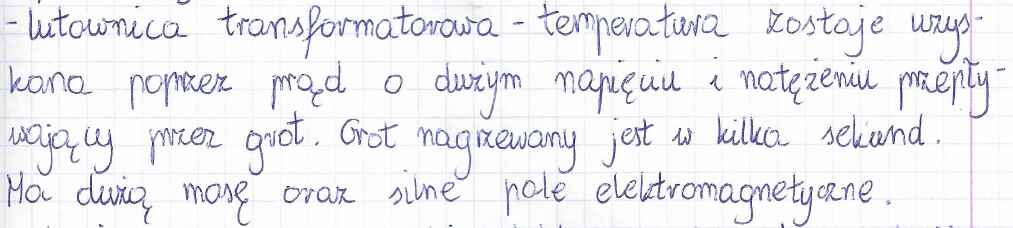 - lutownica transformatorowa - temperatura zostaje uzys-
kana poprzez prąd o dużym napięciu i natężeniu przepły-
wający przez grot. Grot nagrzewany jest w kilka sekund.
Ma dużą masę oraz silne pole elektromagnetyczne.